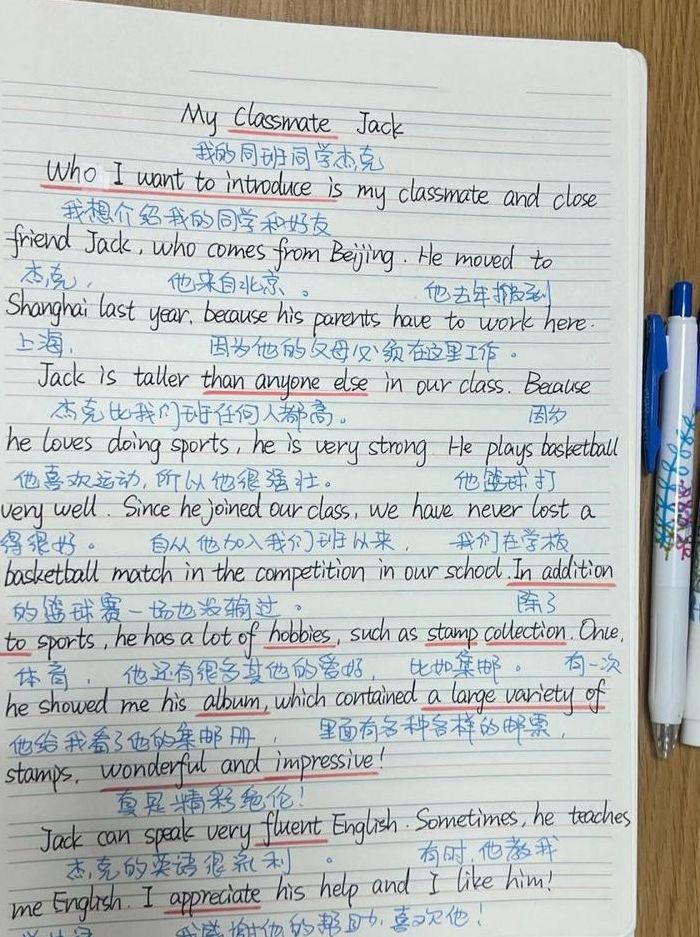 My Classmate Jack
我的同班同学杰克
Who I want to introduce is my classmate and close
我想介绍我的同学和好友
friend Jack, who comes from Beijing. He moved to
杰克, 他来自北京。 他去年搬到
Shanghai last year, because his parents have to work here.
上海, 因为他的父母必须在这里工作。
Jack is taller than anyone else in our class. Because
杰克比我们班任何人都高。 因为
he loves doing sports, he is very strong. He plays basketball
他喜欢运动,所以他很强壮。 他篮球打
very well. Since he joined our class, we have never lost a
得很好。 自从他加入我们班以来, 我们在学校
basketball match in the competition in our school. In addition
的篮球赛一场也没输过。 除了
to sports, he has a lot of hobbies, such as stamp collection. Once,
体育, 他还有很多其他的爱好, 比如集邮。 有一次
he showed me his album, which contained a large variety of
他给我看了他的集邮册, 里面有各种各样的邮票,
stamps, wonderful and impressive!
真是精彩绝伦!
Jack can speak very fluent English. Sometimes, he teaches
杰克的英语很流利。 有时,他教我
me English. I appreciate his help and I like him!
我感谢他的帮助,喜欢他!